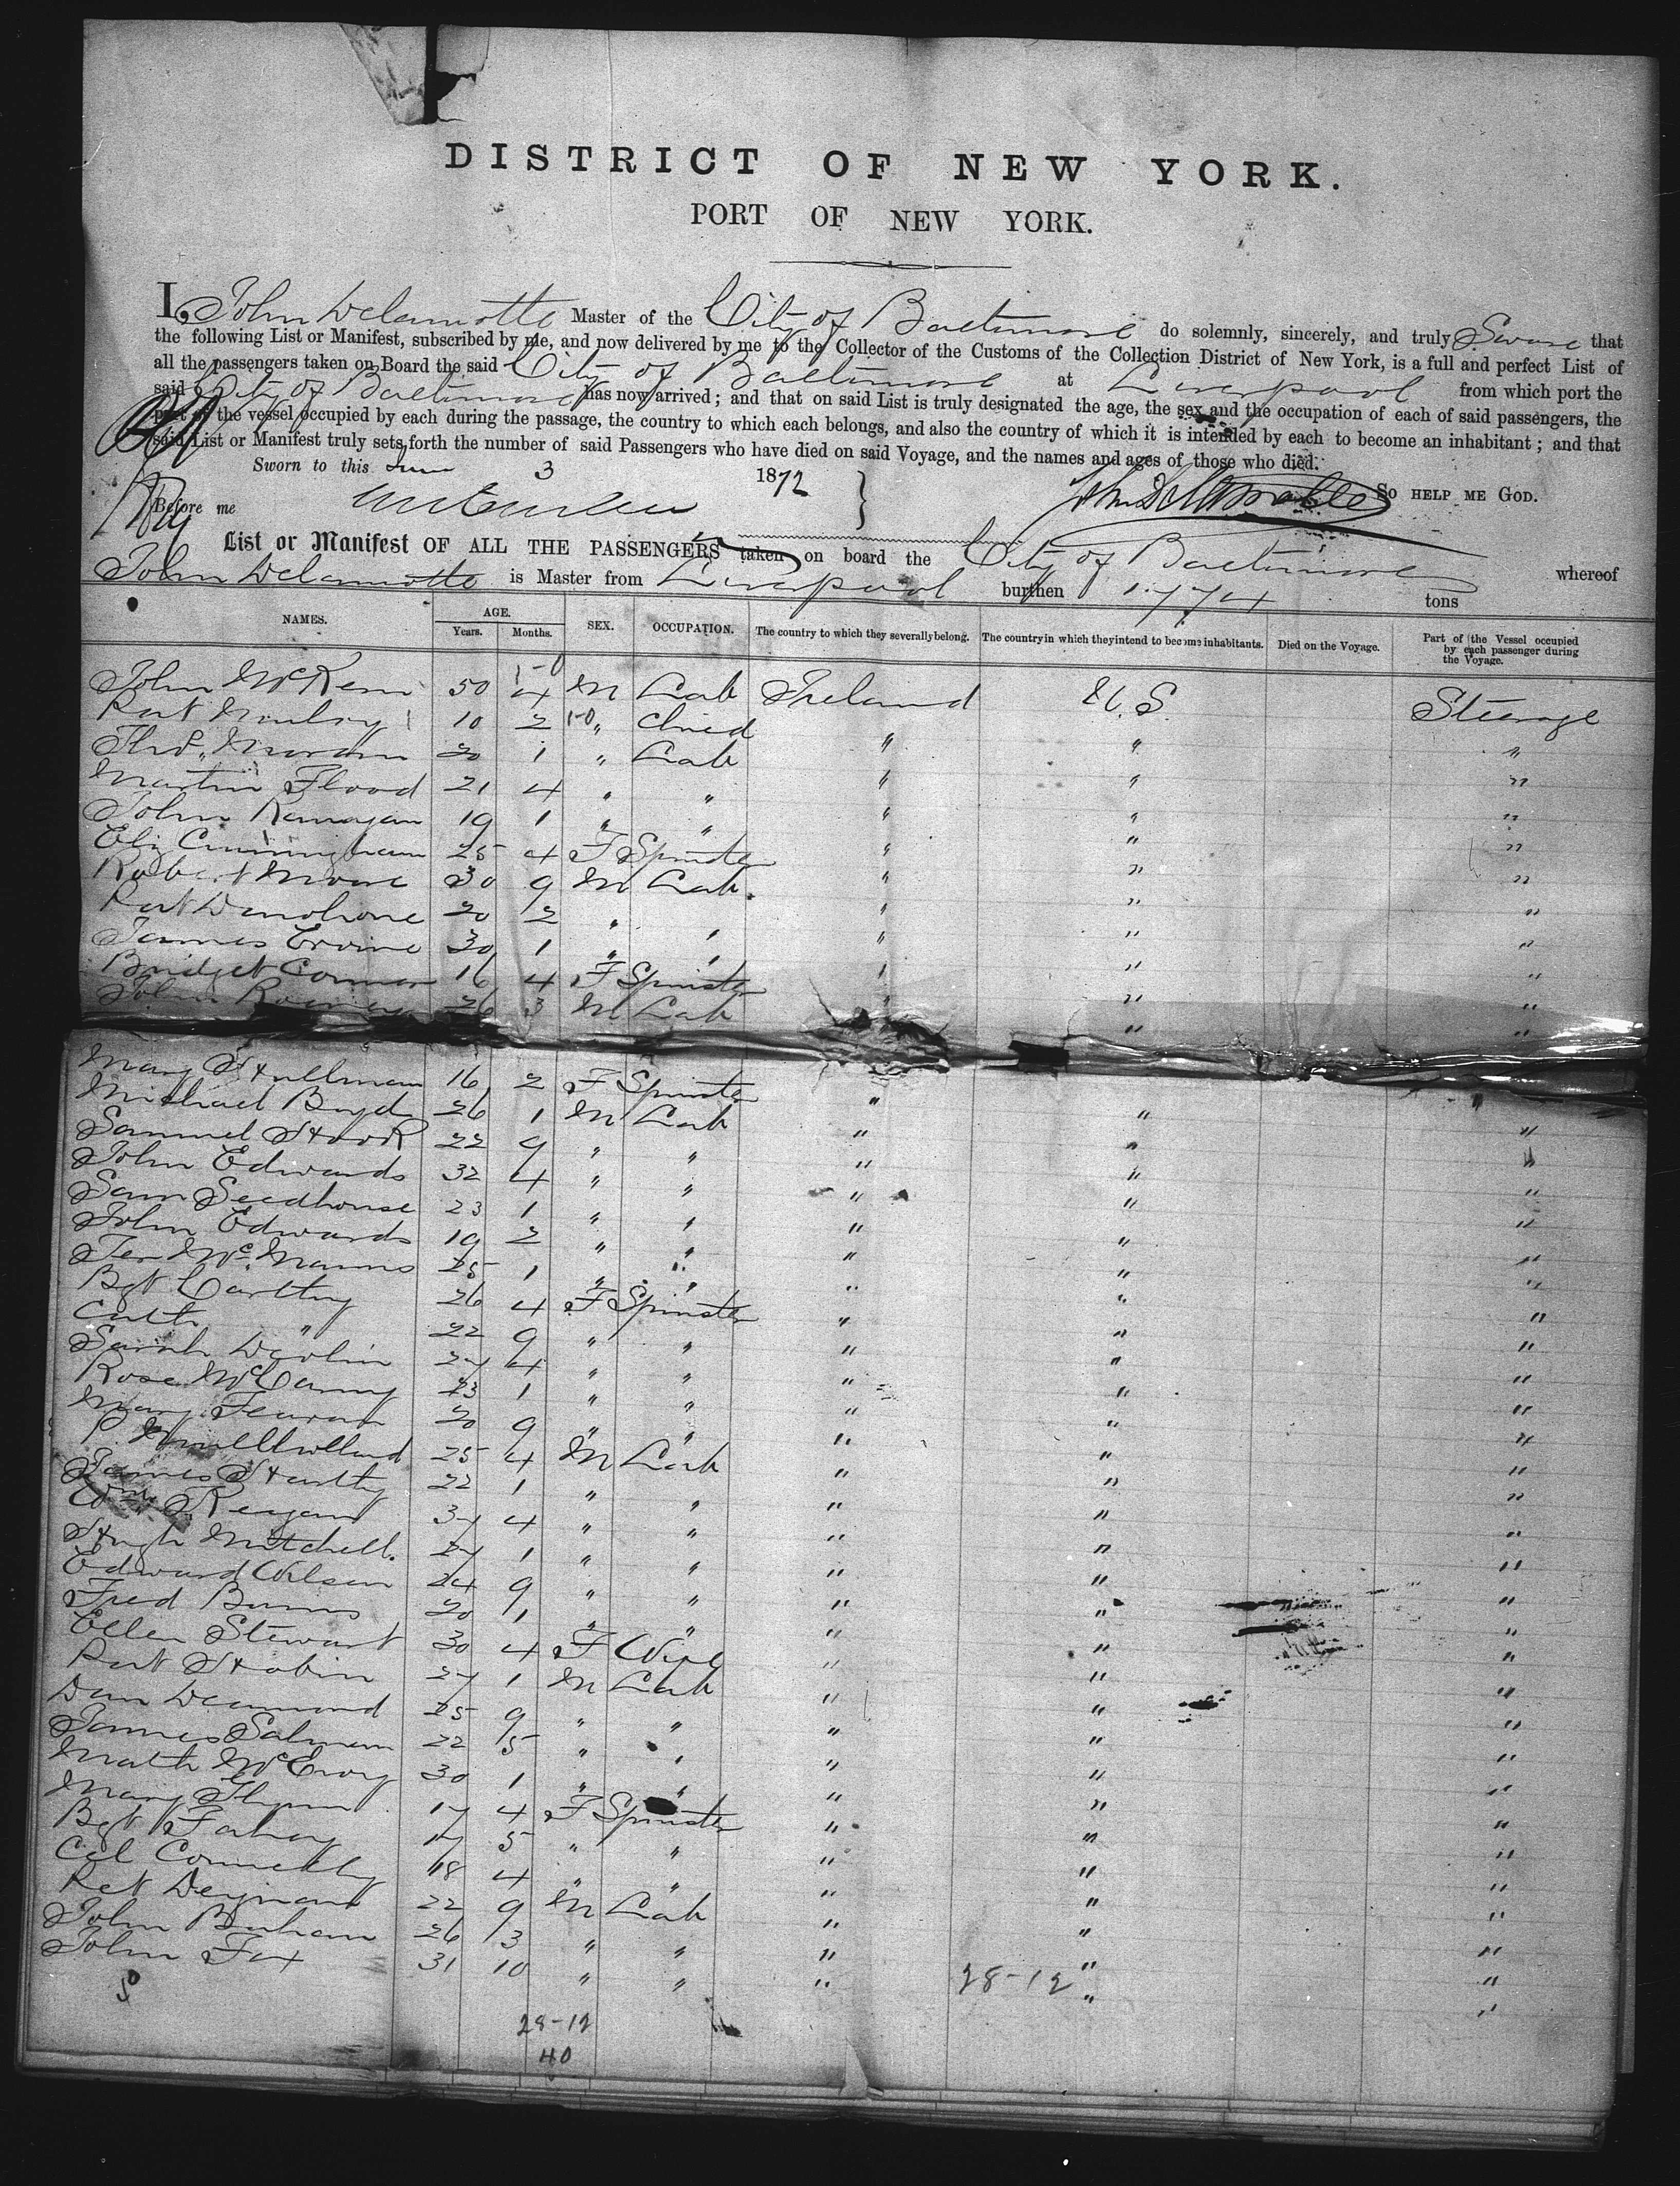 DISTRICT OF NEW YORK.
PORT OF NEW YORK.
I, John Delamotte Master of the City of Baltimore do solemnly, sincerely, and truly Swear that
the following List or Manifest, subscribed by me, and now delivered by me to the Collector of the Customs of the Collection District of New York, is a full and perfect List of
all the passengers taken on Board the said City of Baltimore at Liverpool from which port the
said City of Baltimore has now arrived; and that on said List is truly designated the age, the sex and the occupation of each of said passengers, the
part of the vessel occupied by each during the passage, the country to which each belongs, and also the country of which it is intended by each to become an inhabitant; and that
said List or Manifest truly sets forth the number of said Passengers who have died on said Voyage, and the names and ages of those who died.
Sworn to this June 3 1872 So HELP ME GOD.
Before me John Delamotte
List or Manifest OF ALL THE PASSENGERS taken on board the City of Baltimore whereof
John Delamotte is Master from Liverpool burthen 1774 tons
NAMES. AGE. Years. Months. SEX. OCCUPATION. The country to which they severally belong. The country in which they intend to become inhabitants. Died on the Voyage. Part of the Vessel occupied by each passenger during the Voyage.
John McKern 50 4 M Lab Ireland U.S. Steerage
Pat 10 2 " Child " " "
Thos 20 1 " Lab " " "
Martin Flood 21 4 " " " " "
John 19 1 " " " " "
Eliz Cunningham 25 4 F Spinster " " "
Robert Moore 30 9 M Lab " " "
Pat Donohoue 20 2 " " " " "
James Ervine 30 1 " " " " "
Bridget Connor 16 4 F Spinster " " "
John 26 3 M Lab " " "
Mary 16 2 F Spinster " " "
Michael Boyd 26 1 M Lab " " "
Samuel 22 9 " " " " "
John Edwards 32 4 " " " " "
Sam Seedhouse 23 1 " " " " "
John Edwards 19 2 " " " " "
Ter McManus 25 1 " " " " "
Bgt Carthy 26 4 F Spinster " " "
Cath " 22 9 " " " " "
Sarah Devlin 27 4 " " " " "
Rose McCanny 23 1 " " " " "
Mary 20 9 " " " " "
P. 25 4 M Lab " " "
James 22 1 " " " " "
Wm Reagan 37 4 " " " " "
Hugh Mitchell 27 1 " " " " "
Edward Wilson 24 9 " " " " "
Fred Burns 20 1 " " " " "
Ellen Stewart 30 4 F Wife " " "
Pat 27 1 M Lab " " "
Dan 25 9 " " " " "
James Salmon 22 5 " " " " "
Math McEvoy 30 1 " " " " "
Mary Flynn 17 4 F Spinster " " "
Bgt Fahay 17 5 " " " " "
Cel Connelly 18 4 " " " " "
Pat 22 9 M Lab " " "
John 26 3 " " " " "
John Fox 31 10 " " " " "
28-12
28-12
40